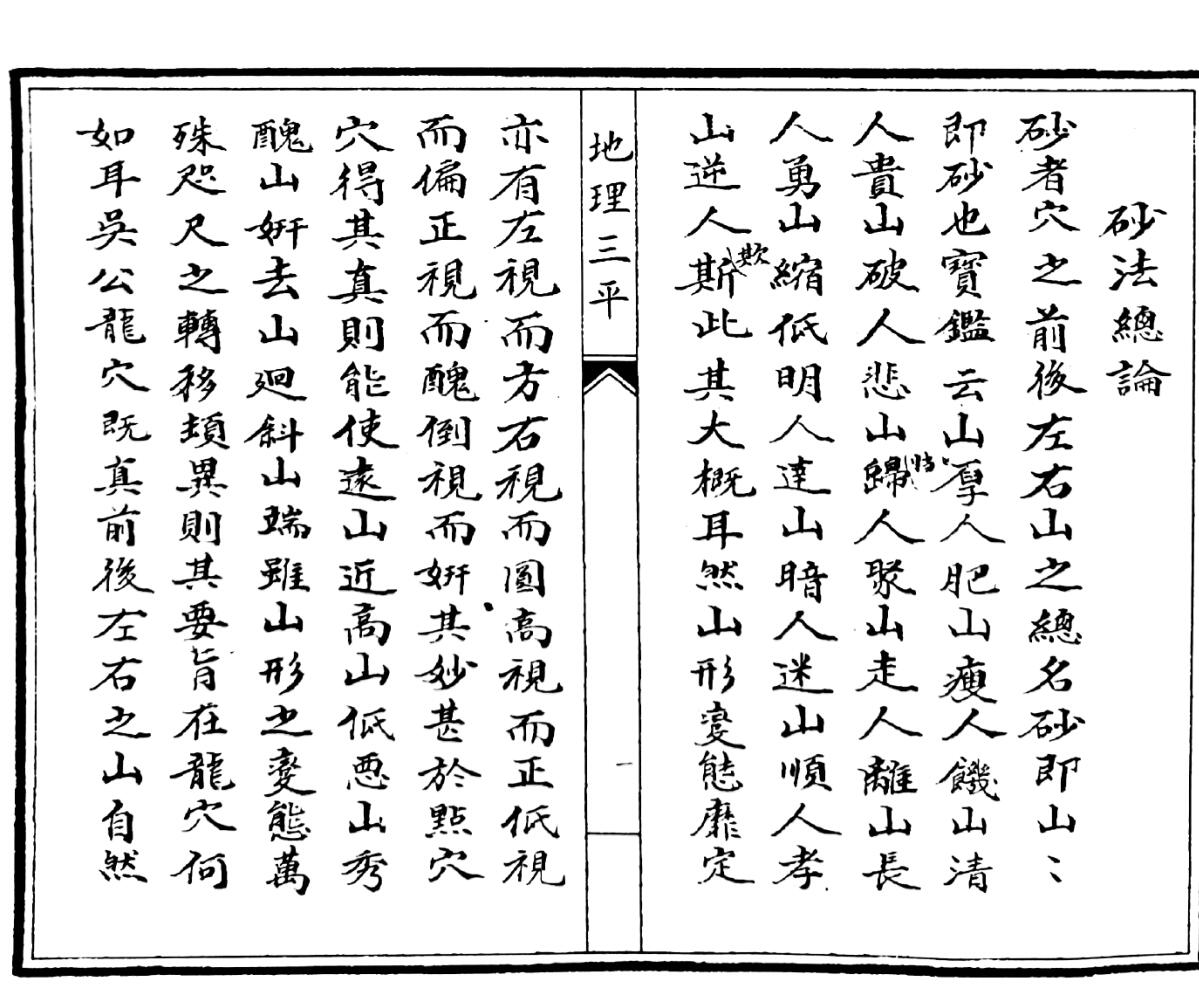 砂法總論
砂者穴之前後左右山之總名砂即山〻
即砂也寶鑑云山厚人肥山瘦人饑山清
人貴山破人悲山歸人聚山走人離山長
人勇山縮低明人達山暗人迷山順人孝
山逆人斯欺此其大概耳然山形变態靡定
地理三平
一
亦有左視而方右視而圓高視而正低視
而偏正視而醜倒視而妍其妙甚於點穴
穴得其真則能使遠山近高山低惡山秀
醜山妍去山迴斜山端雖山形之变態萬
殊咫尺之轉移頓異則其要旨在龍穴何
如耳吳公龍穴既真前後左右之山自然